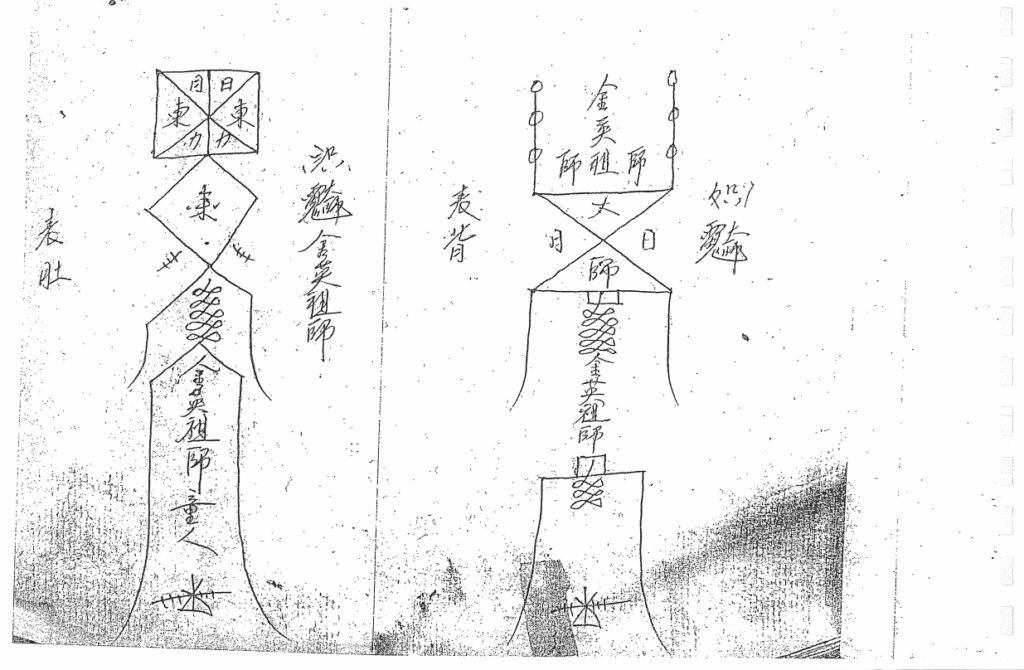 月日
東東
力力
東
金英祖師
金英祖師童人
表肚
金英祖師
師師
大
月日
師
金英祖師
表背